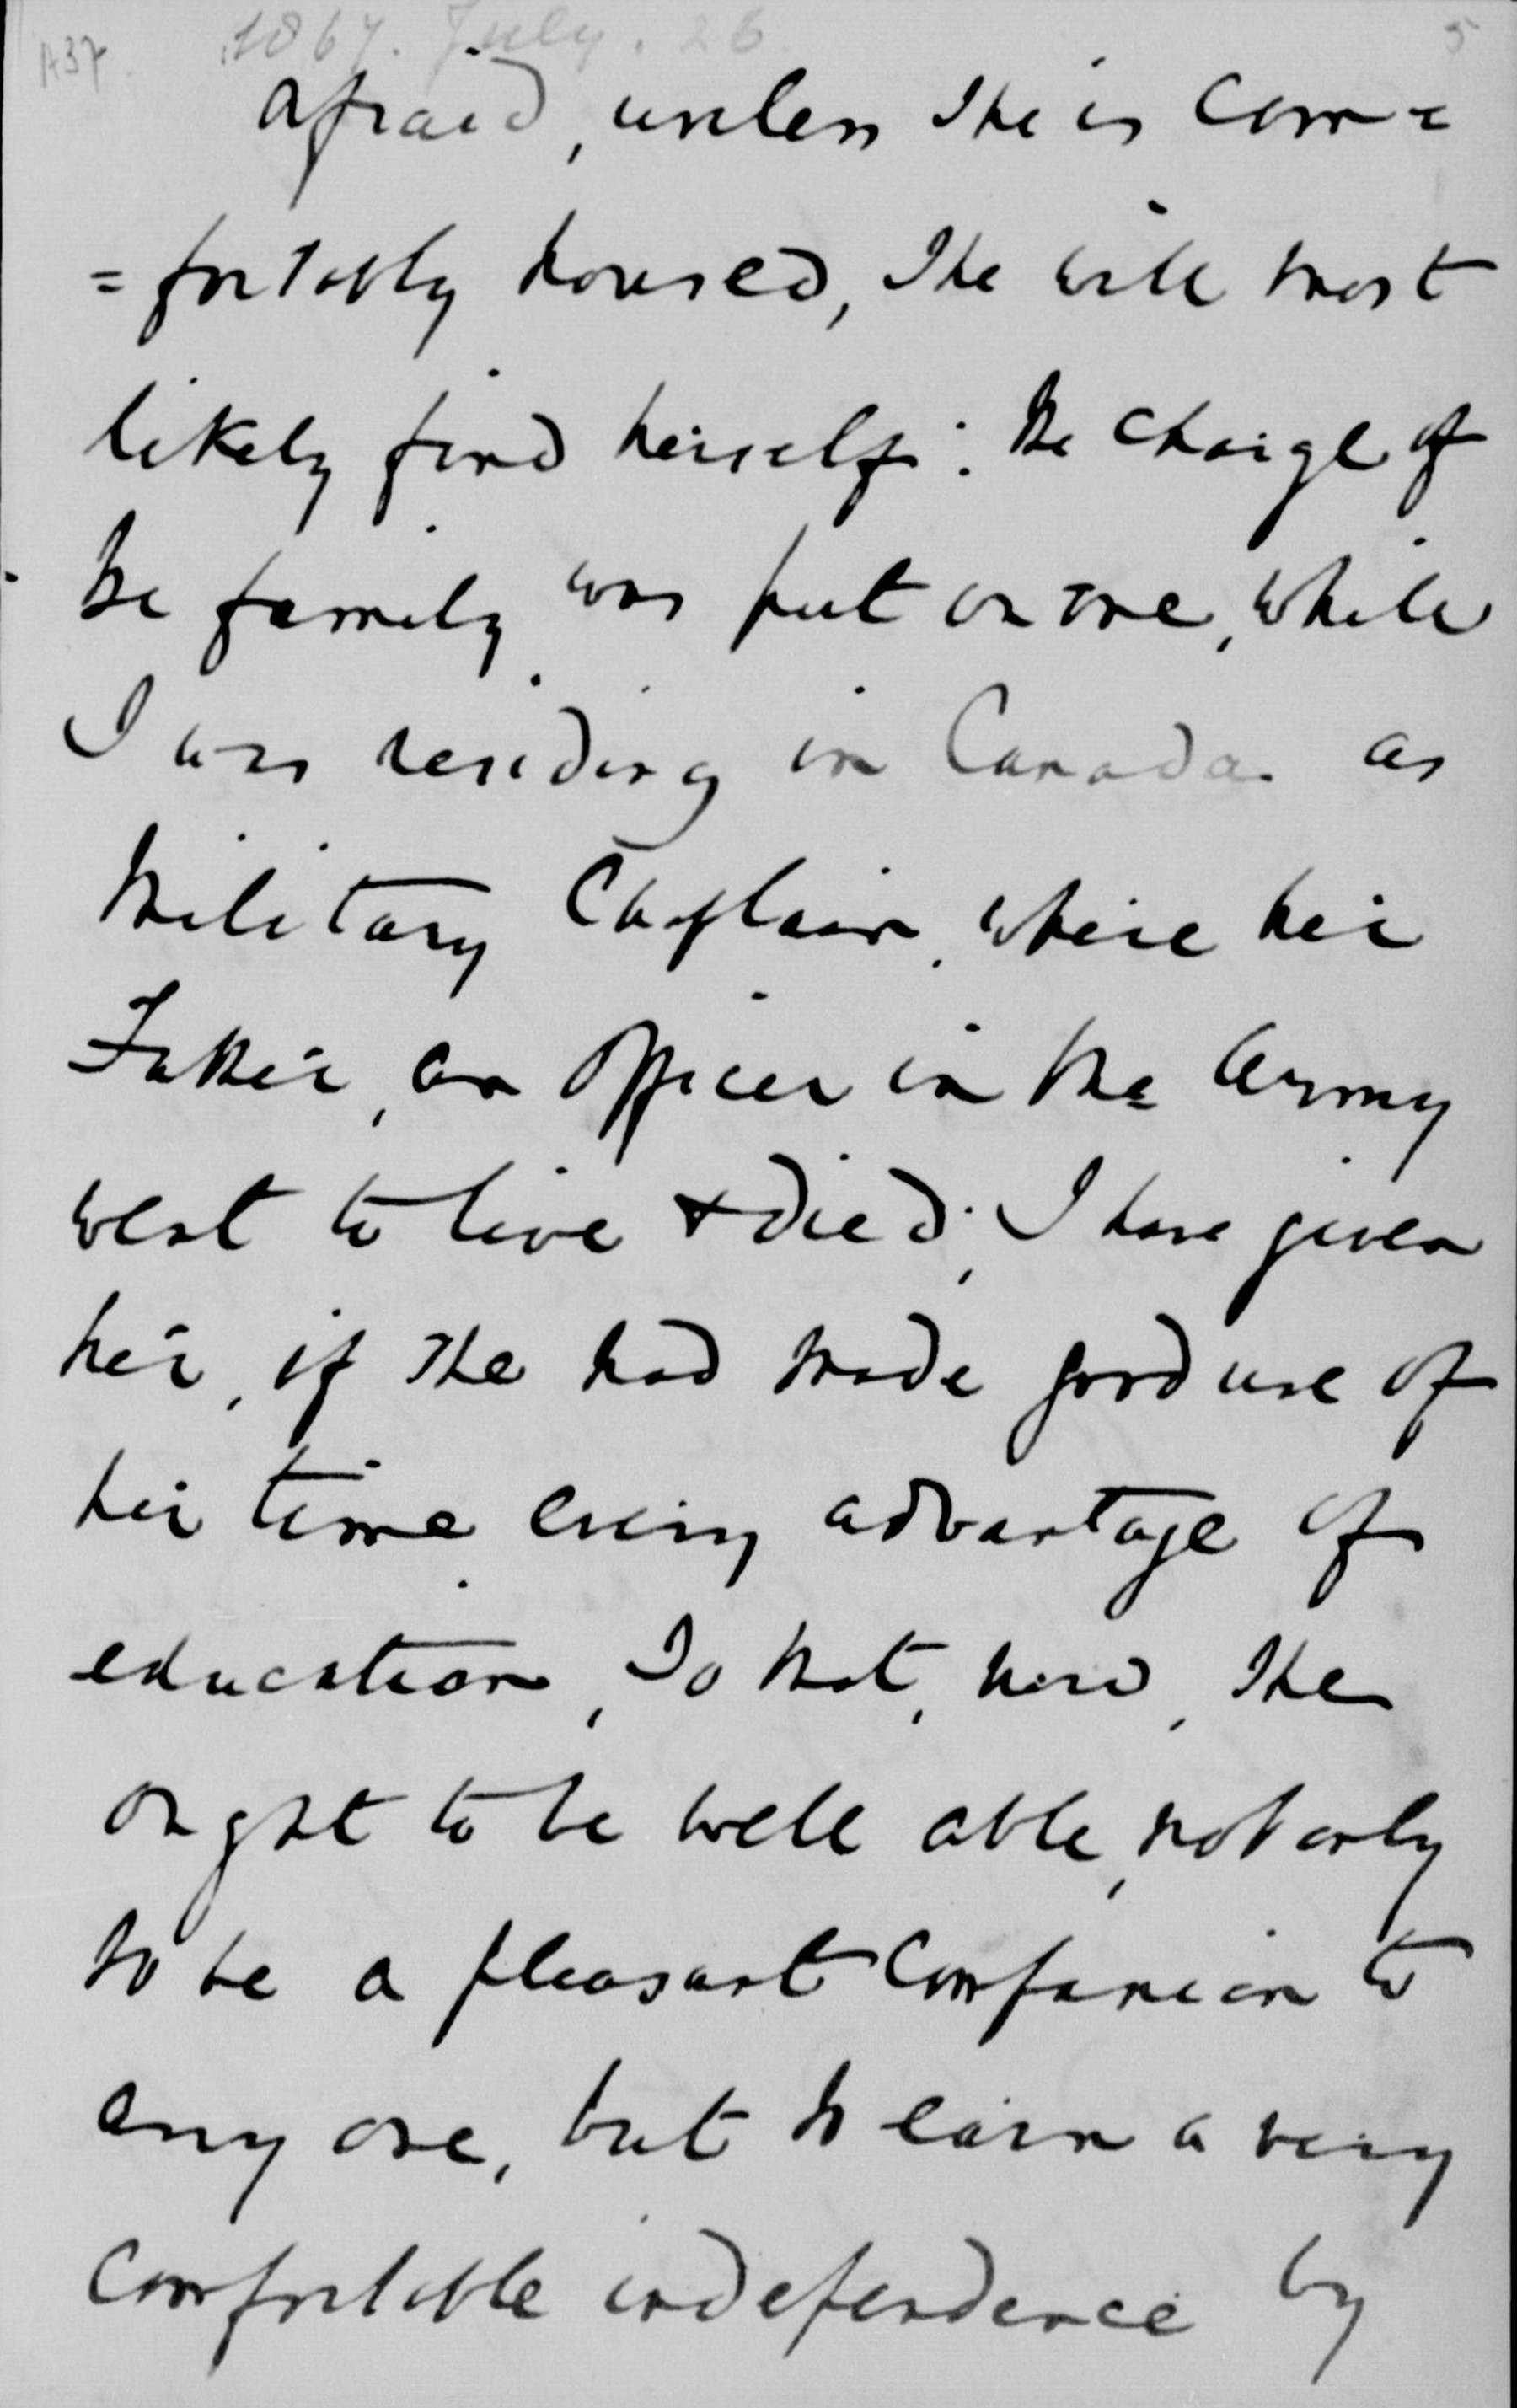 A37. 1867. July. 26 5
afraid, unless She is Com=
=fortably housed, She will most
likely find herself: the charge of
the family was put on me, while
I was residing in Canada as
Military Chaplain, where her
Father, an Officer in the Army
went to live & died; I have given
her, if She had made good use of
her time every advantage of
education, So that, now, She
ought to be well able, not only
to be a pleasant Companion to
any one, but to earn a very
Comfortable independence by